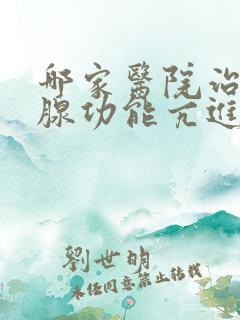 哪家醫院治
腺功能亢進
劉世明
未经同意禁止转载